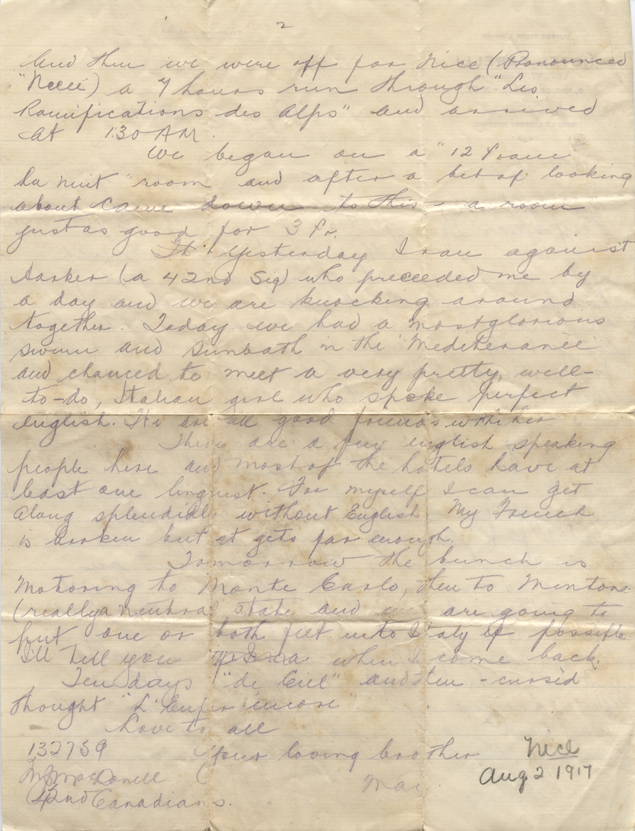 2
And then we were off for Nice (Pronounced
"Neece) a 7 hours run through "Les
Ramifications des Alps" and arrived
at 130 AM.
We began on a "12 Franc
La nuit" room and after a bit of looking
about came down to this - a room
just as good for 3 Fr.
Yesterday I ran against
Sarker (a 42nd Sig) who preceeded me by
a day and we are knocking around
together. Today we had a most glorious
swim and sunbath in the Mediteranée
and chanced to meet a very pretty well-
to-do, Italian girl who spoke perfect
english. We are all good friends with her
There are a few english speaking
people here and most of the hotels have at
least one linguist. For myself I can get
along splendidly without English. My French
is broken but it gets far enough.
Tomorrow the bunch is
Motoring to Monte Carlo, then to Mintone
(really a neutral state and we are going to
put one or both feet into Italy if possible
I'll tell you when I come back.
Ten days "de Ciel" and then - cursed
thought "L'Enfer encore"
Love to all
132759 Your loving brother Nice
McDonell Mac Aug 2 1917
42nd Canadians.